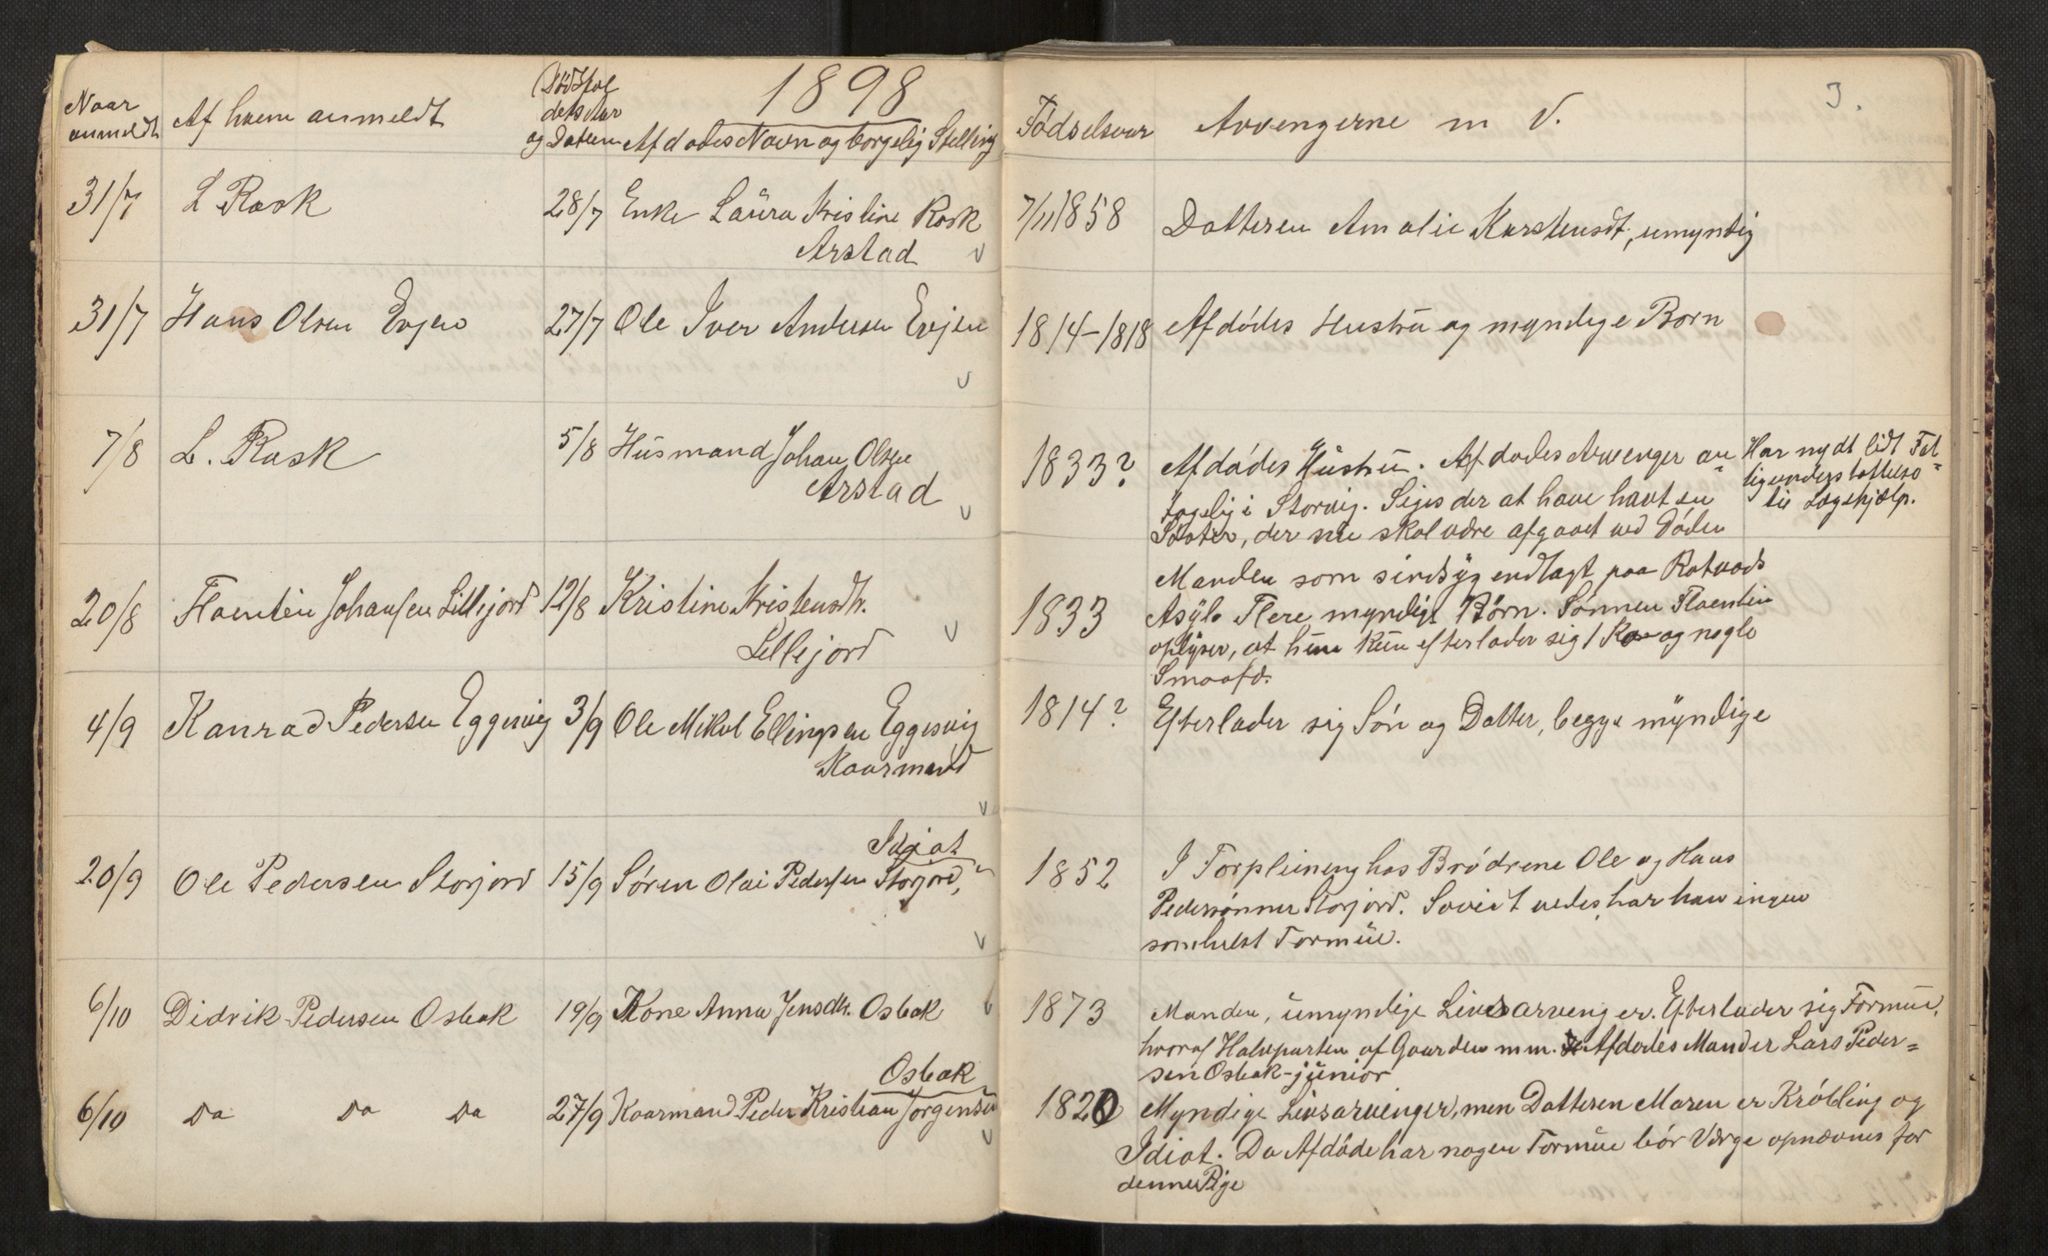 1898
3.
Naar anmeldt
Af hvem anmeldt
Dødsfaldets Aar og Datum
Afdødes Navn og borgelig Stelling
Fødselsaar
Arvengerne m V.
31/7 L Rask 28/7 Enke Laura Kristine Rask
Arstad
7/11 1858 Datteren Amalie Karstensdt, umyndig
31/7 Hans Olsen Evjen 27/7 Ole Iver Andersen Evjen
1814-1818 Afdødes Hustru og myndige Børn
7/8 L. Rask 5/8 Husmand Johan Olsen
Arstad
1833? Afdødes Hustru. Afdødes Arvenger an-
tagelig i Storvig. Siges der at have havt en
Datter, der nu skal være afgaaet ved Døden
Har nydt lidt Fat-
tigunderstøttelse
til Lægehjælp.
20/8 Floentin Johansen Lillejord 12/8 Kristine Kristensdtr.
Lillejord
Manden som sindsyg indlagt paa Rotvolds
1833 Asyl. Flere myndige Børn. Sønnen Floentin
oplyser, at hun kun efterlader sig 1 Ko og nogle
Smaafæ.
4/9 Konrad Pedersen Eggesvig 3/9 Ole Mikal Ellingsen Eggesvig
Kaarmand
1814? Efterlader sig Søn og Datter, begge myndige
20/9 Ole Pedersen Storjord 15/9 Søren Olai Pedersen Storjord,
Idiot
1852 I Forpleining hos Brødrene Ole og Hans
Pedersønner Storjord. Savidt vedes, har han ingen
somhelst Formue.
6/10 Didrik Pedersen Osbak 19/9 Kone Anna Jensdtr. Osbak
1873 Manden, umyndige Livsarvenger. Efterlader sig Formue,
hvoraf Halvparten af Gaarden m m. Afdødes Mand er Lars Peder=
sen Osbak-junior
6/10 Do Do Do 27/9 Kaarmand Peder Kristian Jørgensen
Osbak
1820 Myndige Livsarvenger, men Datteren Maren er Krøbling og
Idiot. Da Afdøde har nogen Formue bør Værge opnævnes for
denne Pige